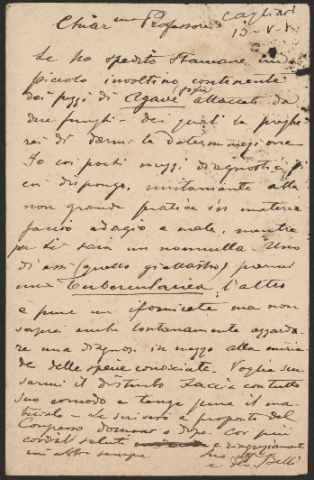 Chiar.mo Professore Cagliari
Le ho spedito stamane un
piccolo involtino contenente
dei pezzi di Agave attaccati da
due funghi - dei quali la preghe
rei di darmi la determinazione
Io coi pochi mezzi diagnostici di
cui dispongo, unitamente alla
non grande pratica in materia
faccio adagio e male, mentre
per Lei sarà un nonnulla. Uno
di essi (quello giallastro) parmi
una Tuberculariea; l'altro
è pure un ifomicete ma non
saprei anche lontanamente azzarda
re una diagnosi in mezzo alla miria
de delle specie conosciute. Voglia scu
sarmi il disturbo faccia con tutto
suo comodo e tenga pure il ma
teriale - Le scriverò a proposito del
Congresso domani o dopo. Coi più
cordiali saluti e ringraziamenti
mi abbia sempre Suo
Belli